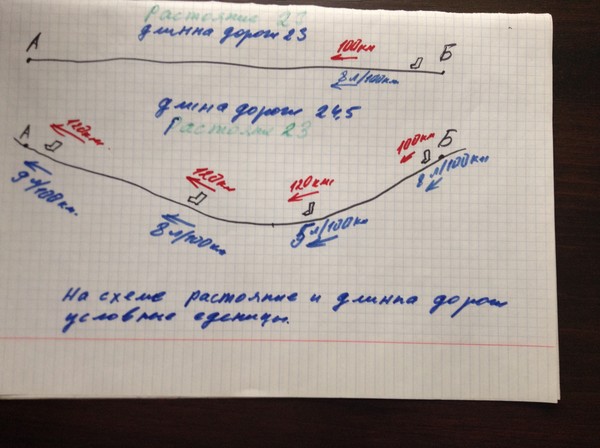 Растояние 23
длинна дороги 23
А
100км
Б
8 л/100км
длина дороги 24,5
Растояние 23
А
120км
120км
120км
100км
Б
9 л/100км
8 л/100км
5 л/100км
8 л/100км
На схеме растояние и длинна дороги
условные еденицы.